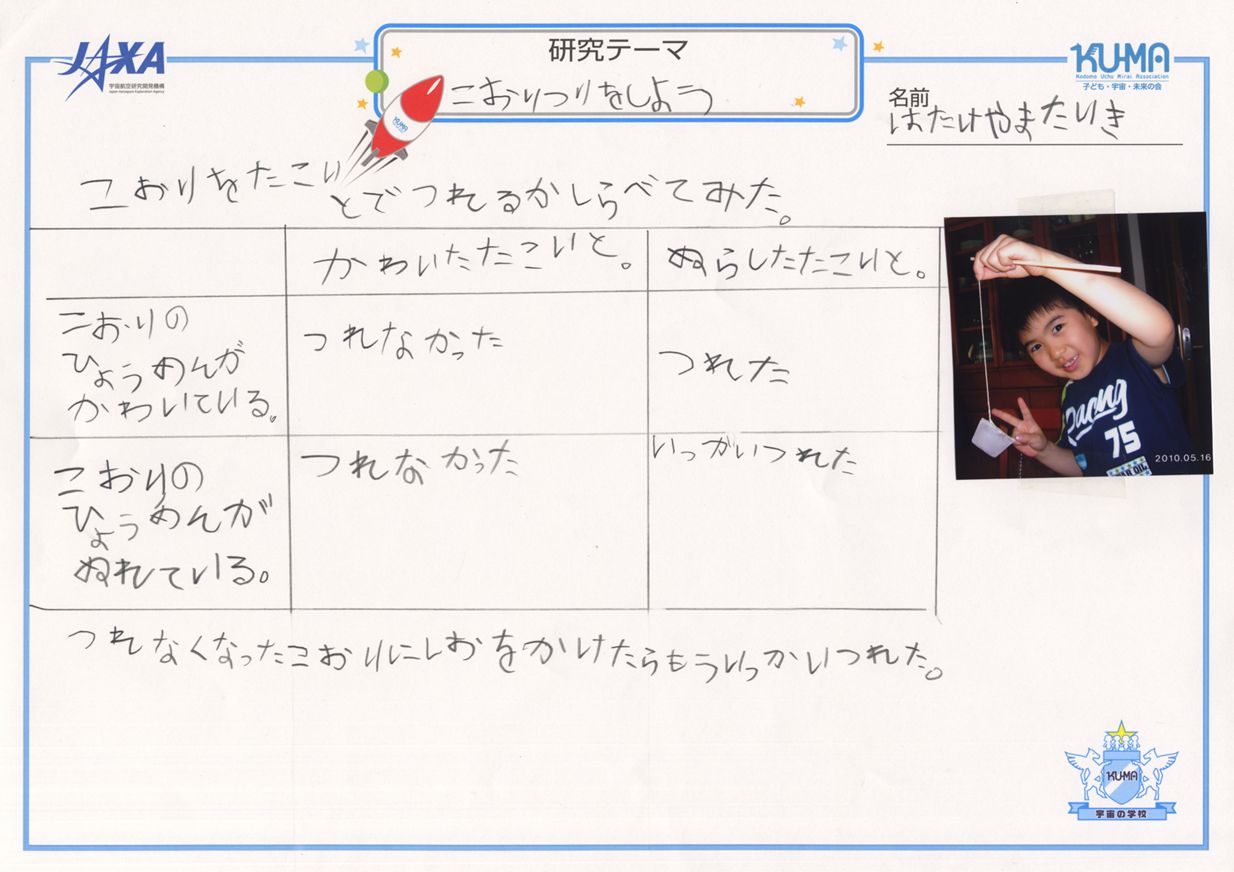 JAXA
宇宙航空研究開発機構
Japan Aerospace Exploration Agency
研究テーマ
こおりつりをしよう
KUMA
KU-MA
Kodomo Uchu Mirai Association
子ども・宇宙・未来の会
名前
はたけやまたいき
こおりをたこいとでつれるかしらべてみた。
かわいたたこいと。
ぬらしたたこいと。
こおりの
ひょうめんが
かわいている。
つれなかった
つれた
こおりの
ひょうめんが
ぬれている。
つれなかった
いっかいつれた
つれなくなったこおりにしおをかけたらもういっかいつれた。
Racing
75
2010.05.16
KU-MA
宇宙の学校